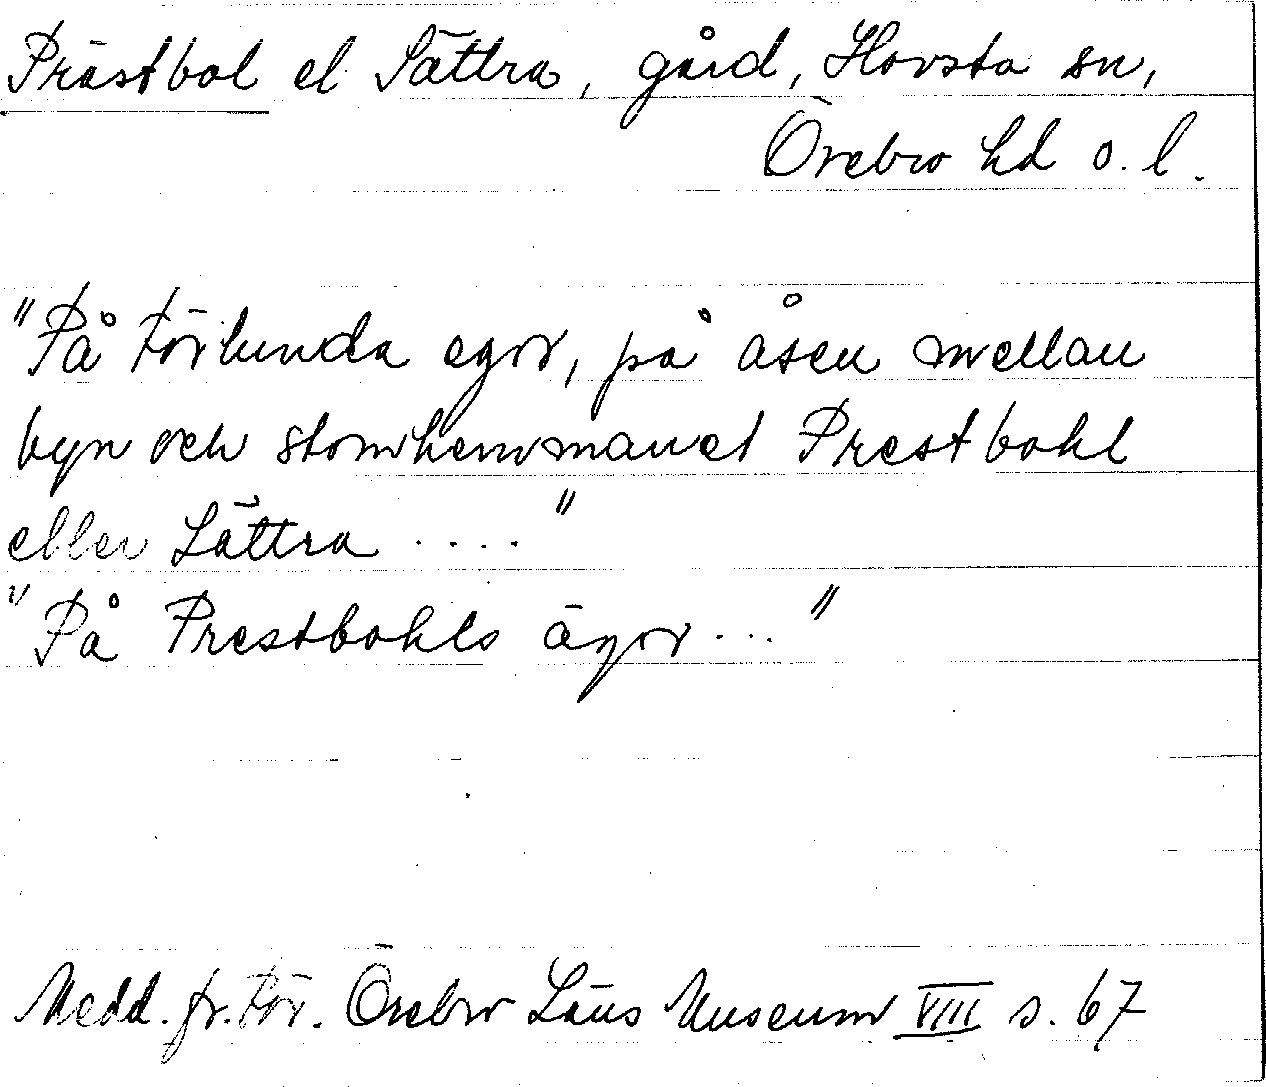 Prästbol el Sättra, gård, Hovsta sn,
Örebro hd o. l.
"På Förlunda egor, på åsen mellan
byn och stomhemmanet Prestbohl
eller Sättra ...."
"På Prestbohls ägor ..."
Medd. fr. För. Örebro Läns Museum VIII s. 67